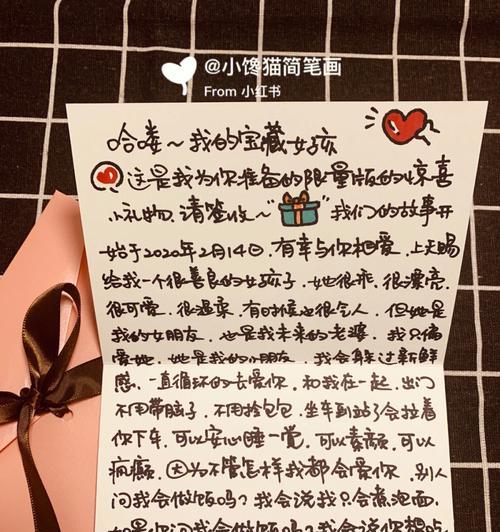 @小馋猫简笔画
From 小红书
哈喽~我的宝藏女孩
这是我为你准备的限量版的惊喜
小礼物.请签收~ 我们的故事开
始于2020年2月14日.有幸与你相爱.上天赐
给我一个很善良的女孩子.她很乖.很漂亮.
很可爱.很温柔.有时候也很气人.但她是
我的女朋友.也是我未来的老婆.我只偏
爱她.她是我的小朋友.我会躲过新鲜
感.一直循环的去爱你.和我在一起.出门
不用带脑子.不用拎包包.坐车到站了会拉着
你下车.可以安心睡一觉.可以素颜.可以
疯癫.因为不管怎样我都会爱你.别人
问我会做饭吗?我会说我只会煮泡面.
如果你问我会做饭吗?我会说你想吃